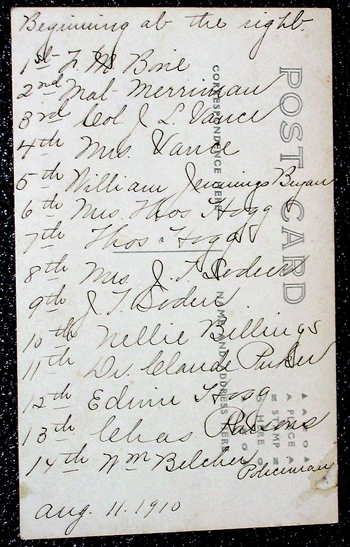 Beginning at the right.
1st F M Bone
2nd Nat Merriman
3rd Col J L Vance
4th Mrs. Vance
5th William Jennings Bryan
6th Mrs. Thos Hogg
7th Thos Hogg
8th Mrs. J. T.
9th J. T.
10th Nellie Billings
11th Dr. Claude Parker
12th Edwin
13th Chas Parsons
14th Wm Belcher
Policeman
Aug. 11. 1910
POST CARD
CORRESPONDENCE HERE
NAME AND ADDRESS HERE
PLACE
STAMP
HERE